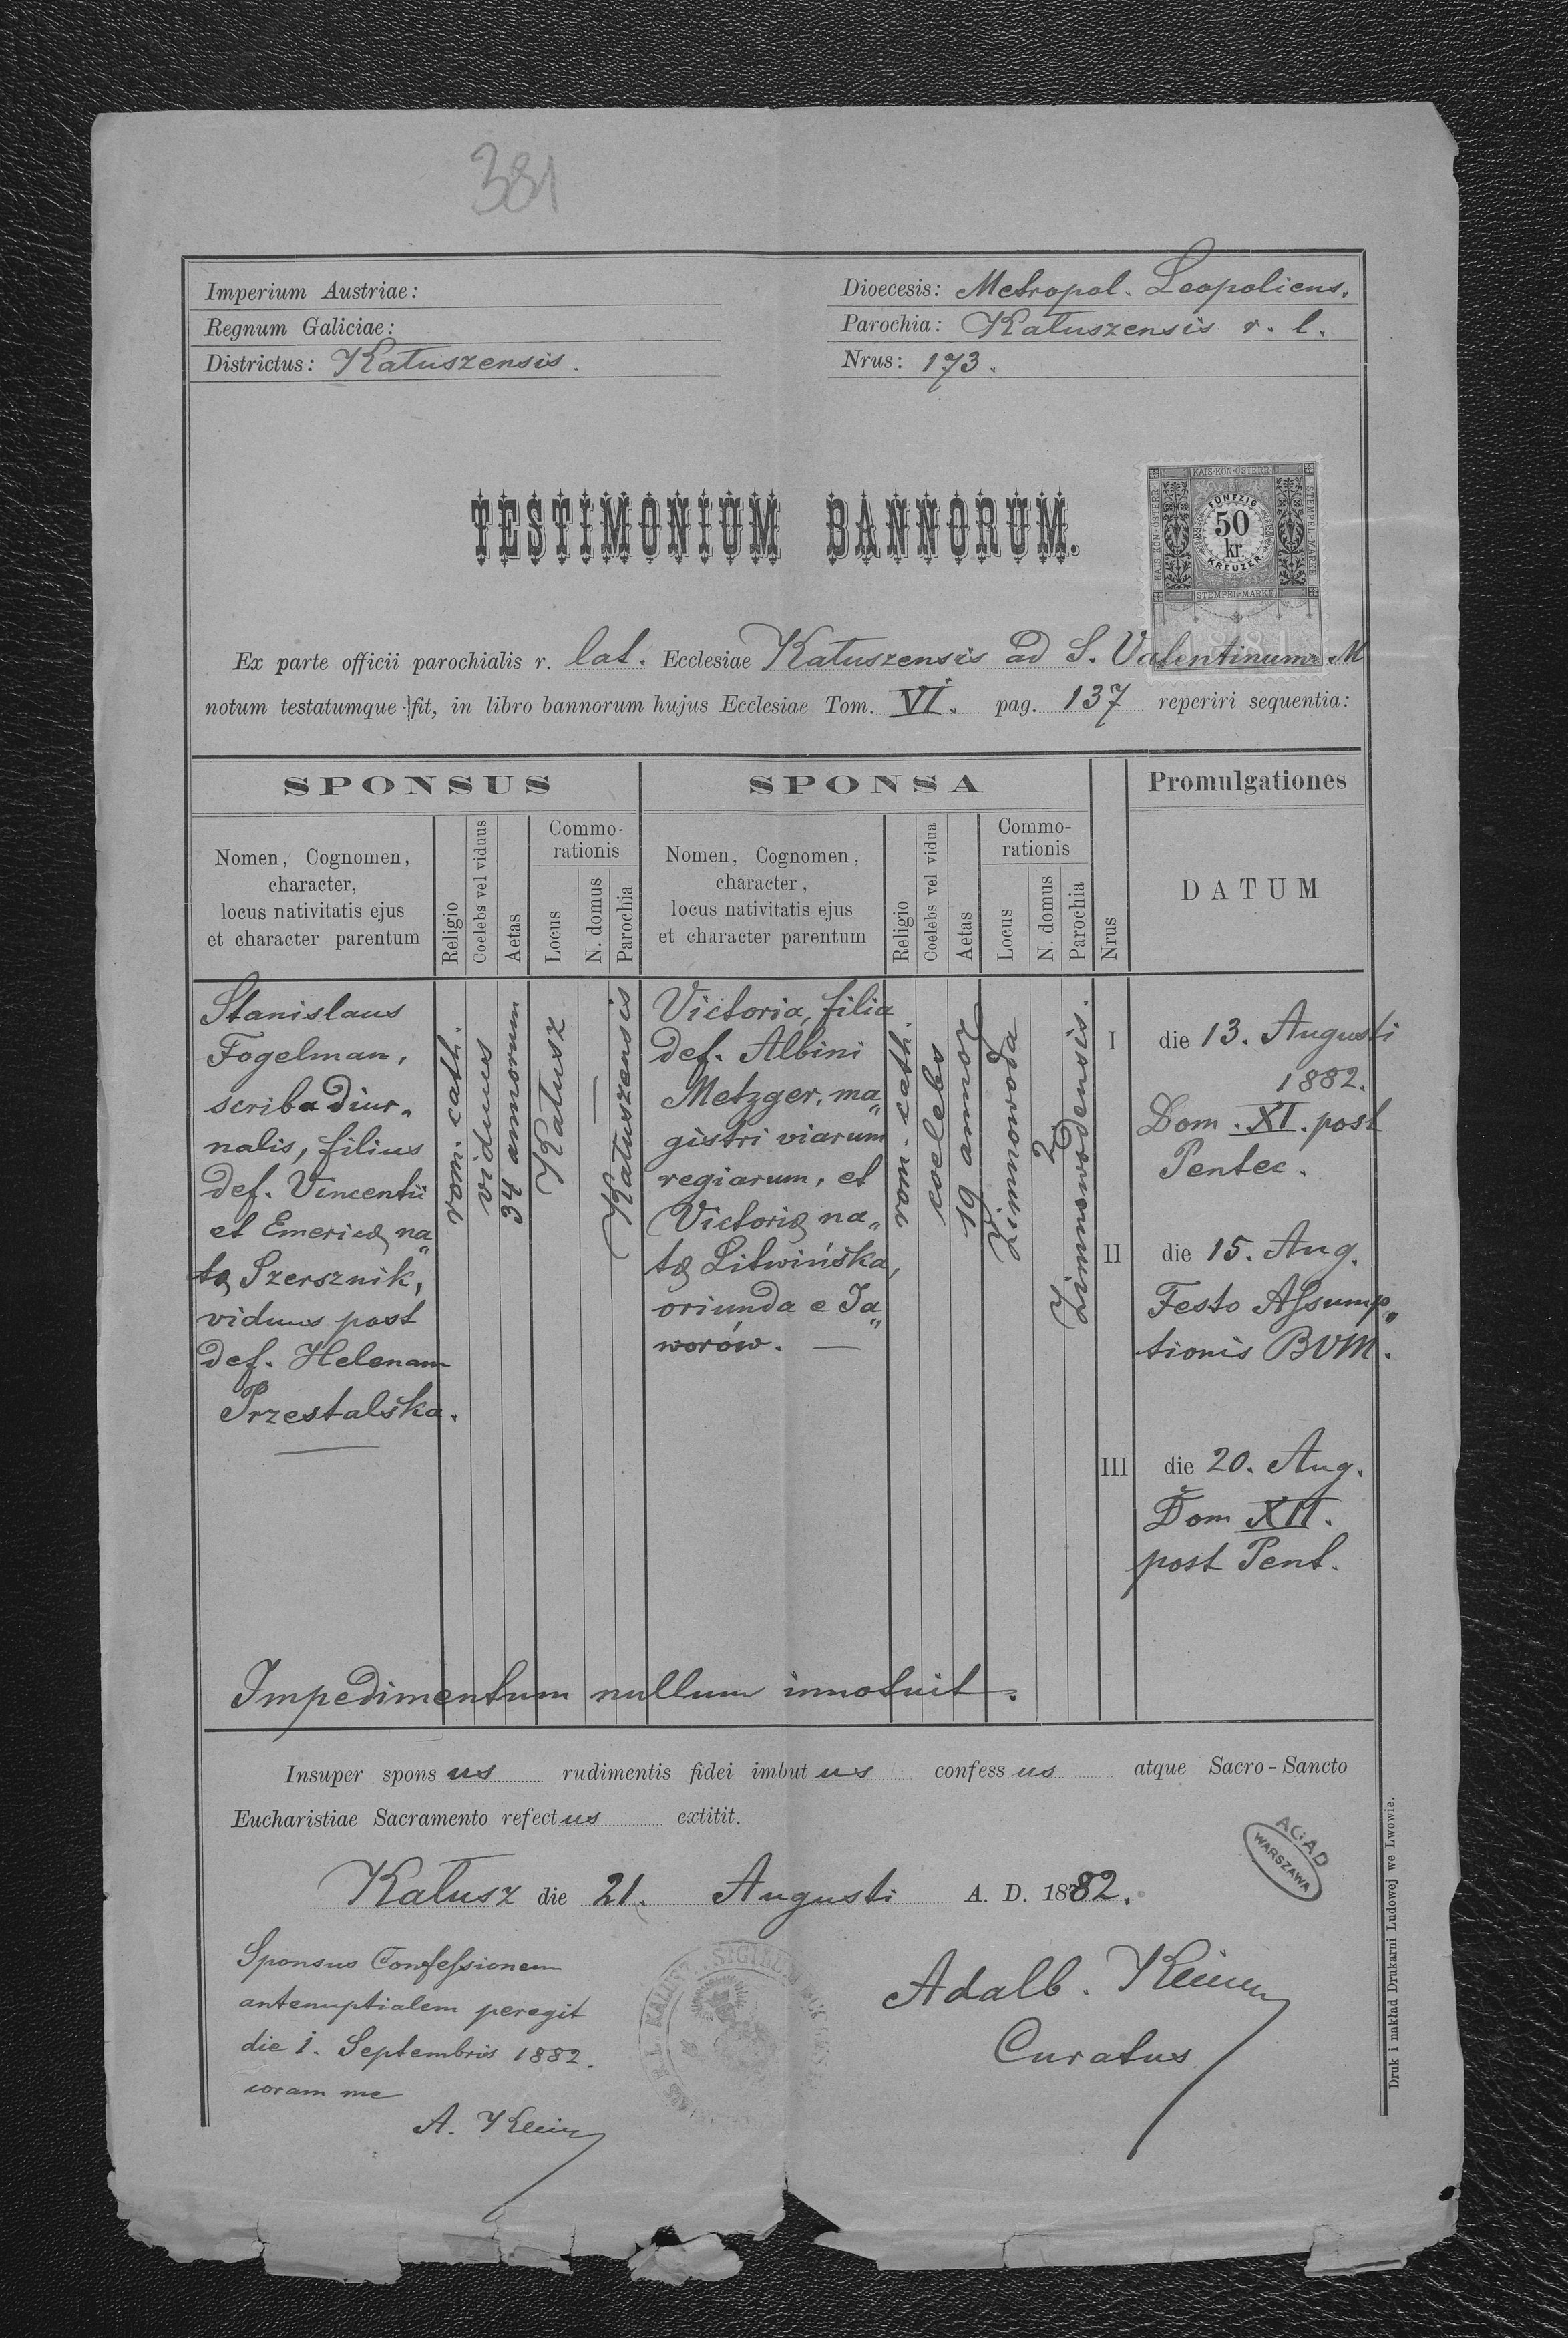 381
Imperium Austriae:
Regnum Galiciae:
Districtus: Kałuszensis.
Dioecesis: Metropol. Leopoliens.
Parochia: Kałuszensis r. l.
Nrus: 173.
TESTIMONIUM BANNORUM.
KAIS·KÖN·ÖSTERR·
KAIS·KÖN·ÖSTERR·
STEMPEL·MARKE
FÜNFZIG
50
kr.
KREUZER
STEMPEL·MARKE
1881
Ex parte officii parochialis r. lat. Ecclesiae Kałuszensis ad S. Valentinum M
notum testatumque fit, in libro bannorum hujus Ecclesiae Tom. VI. pag. 137 reperiri sequentia:
SPONSUS
SPONSA
Promulgationes
Nomen, Cognomen,
character,
locus nativitatis ejus
et character parentum
Religio
Coelebs vel viduus
Aetas
Commo-
rationis
Locus
N. domus
Parochia
Nomen, Cognomen,
character,
locus nativitatis ejus
et character parentum
Religio
Coelebs vel vidua
Aetas
Commo-
rationis
Locus
N. domus
Parochia
Nrus
DATUM
Stanislaus
Fogelman,
scriba diur„
nalis, filius
def. Vincentii
et Emericæ na„
tæ Szersznik,
viduus post
def. Helenam
Przestalska.
rom. cath.
viduus
34 annorum
Kałusz
—
Kałuszensis
Victoria, filia
def. Albini
Metzger, ma„
gistri viarum
regiarum, et
Victoriæ na„
tæ Litwińska,
oriunda e Ja„
worów. —
rom. cath.
coelebs
19 annor
Zimnowoda
2
Zimnowodensis.
I die 13. Augusti
1882.
Dom. XI. post
Pentec.
II die 15. Aug.
Festo Assump„
tionis BVM.
III die 20. Aug.
Dom XII.
post Pent.
Impedimentum nullum innotuit.
Insuper sponsus rudimentis fidei imbutus confessus atque Sacro-Sancto
Eucharistiae Sacramento refectus extitit.
Kałusz die 21. Augusti A. D. 1882.
AGAD
WARSZAWA
Sponsus Confessionem
antenuptialem peregit
die 1. Septembris 1882.
coram me
A. Klein
Adalb. Klein
Curatus
Druk i nakład Drukarni Ludowej we Lwowie.